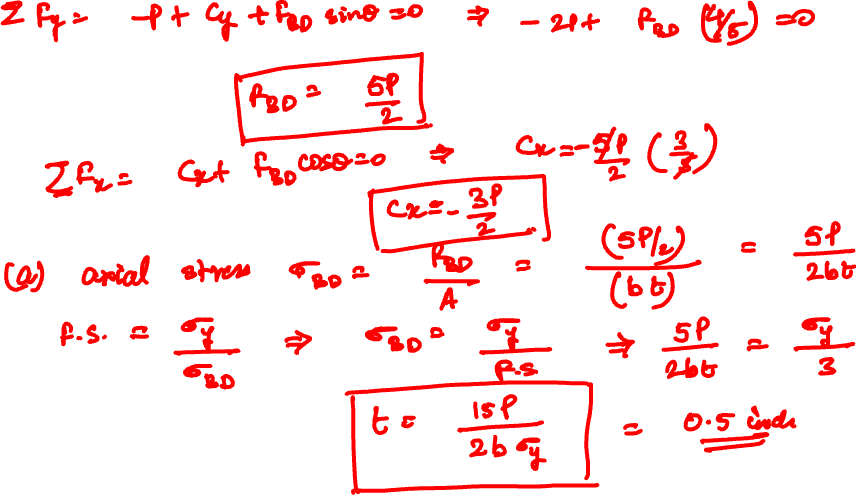 Σ Fy = -P + Cy + FBD sinθ = 0 ⇒ - 2P + FBD (4/5) = 0
FBD = 5P/2
Σ Fx = Cx + FBD cosθ = 0 ⇒ Cx = - 5P/2 (3/5)
Cx = - 3P/2
(a) axial stress σBD = FBD/A = (5P/2)/(bt) = 5P/2bt
F.S. = σy/σBD ⇒ σBD = σy/F.S ⇒ 5P/2bt = σy/3
t = 15P/2b σy = 0.5 inch